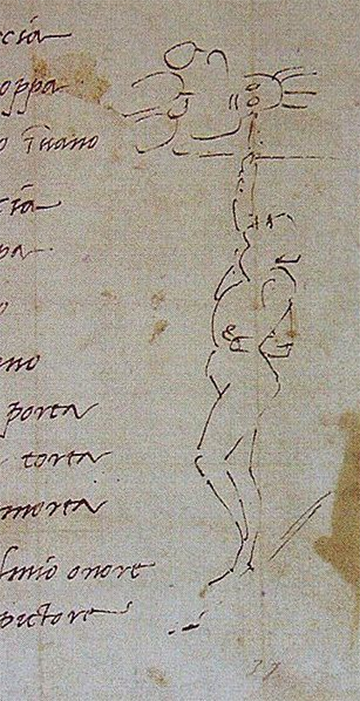 ccia
oppa
o ī uano
cia
pa
o
ano
porta
torta
morta
lmio onore
pictore